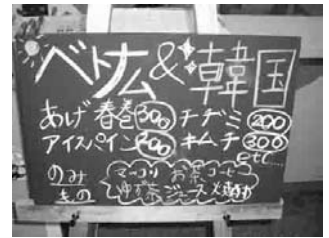 ベトナム&韓国
あげ春巻300 チヂミ200
アイスパイン200 キムチ300
etc...
のみもの
マッコリ お茶 コーヒー
ゆず茶 ジュース